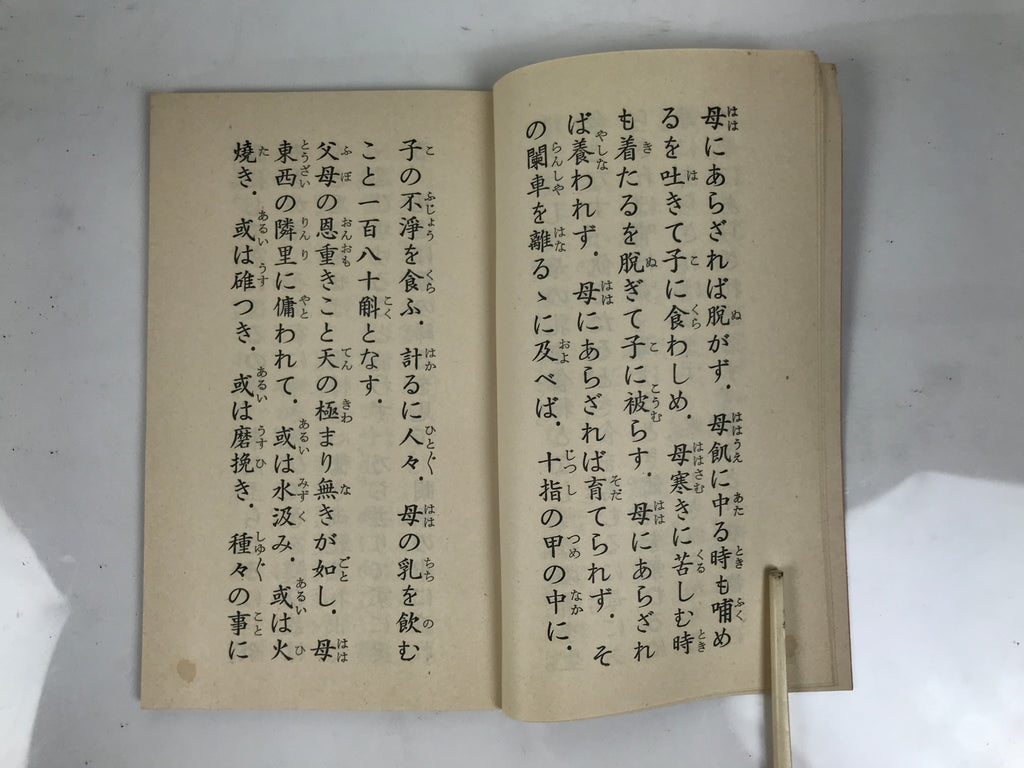 母にあらざれば脫がず．母飢に中る時も哺め
るを吐きて子に食わしめ．母寒きに苦しむ時
も着たるを脫ぎて子に被らす．母にあらざれ
ば養われず．母にあらざれば育てられず．そ
の闌車を離るゝに及べば．十指の甲の中に．
子の不淨を食ふ．計るに人々．母の乳を飮む
こと一百八十斛となす．
父母の恩重きこと天の極まり無きが如し．母
東西の隣里に傭われて．或は水汲み．或は火
燒き．或は碓つき．或は磨挽き．種々の事に